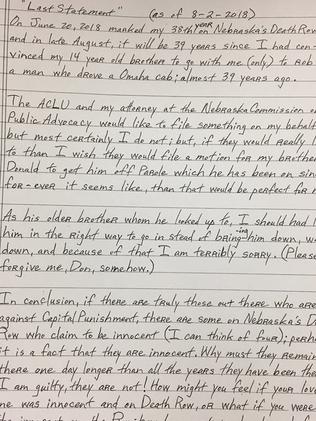 "Last Statement" (as of 8-2-2018)
On June 20, 2018 marked my 38th year on Nebraska's Death Row
and in late August, it will be 39 years since I had con-
vinced my 14 year old brother to go with me (only) to Rob
a man who drove a Omaha cab; almost 39 years ago.
The ACLU and my attorney at the Nebraska Commission on
Public Advocacy would like to file something on my behalf
but most certainly I do not; but, if they would really l
to than I wish they would file a motion for my brother
Donald to get him off Parole which he has been on sin
for-ever it seems like, than that would be perfect for m
As his older brother whom he looked up to, I should had l
him in the right way to go in stead of bring-ing him down, w
down, and because of that I am terribly sorry. (Please
forgive me, Don, somehow.)
In conclusion, if there are truly those out there who are
against Capital Punishment, there are some on Nebraska's D
Row who claim to be innocent (I can think of four); perh
it is a fact that they are innocent. Why must they remain
there one day longer than all the years they have been the
I am guilty, they are not! How might you feel if your love
ne was innocent and on Death Row, or what if you were